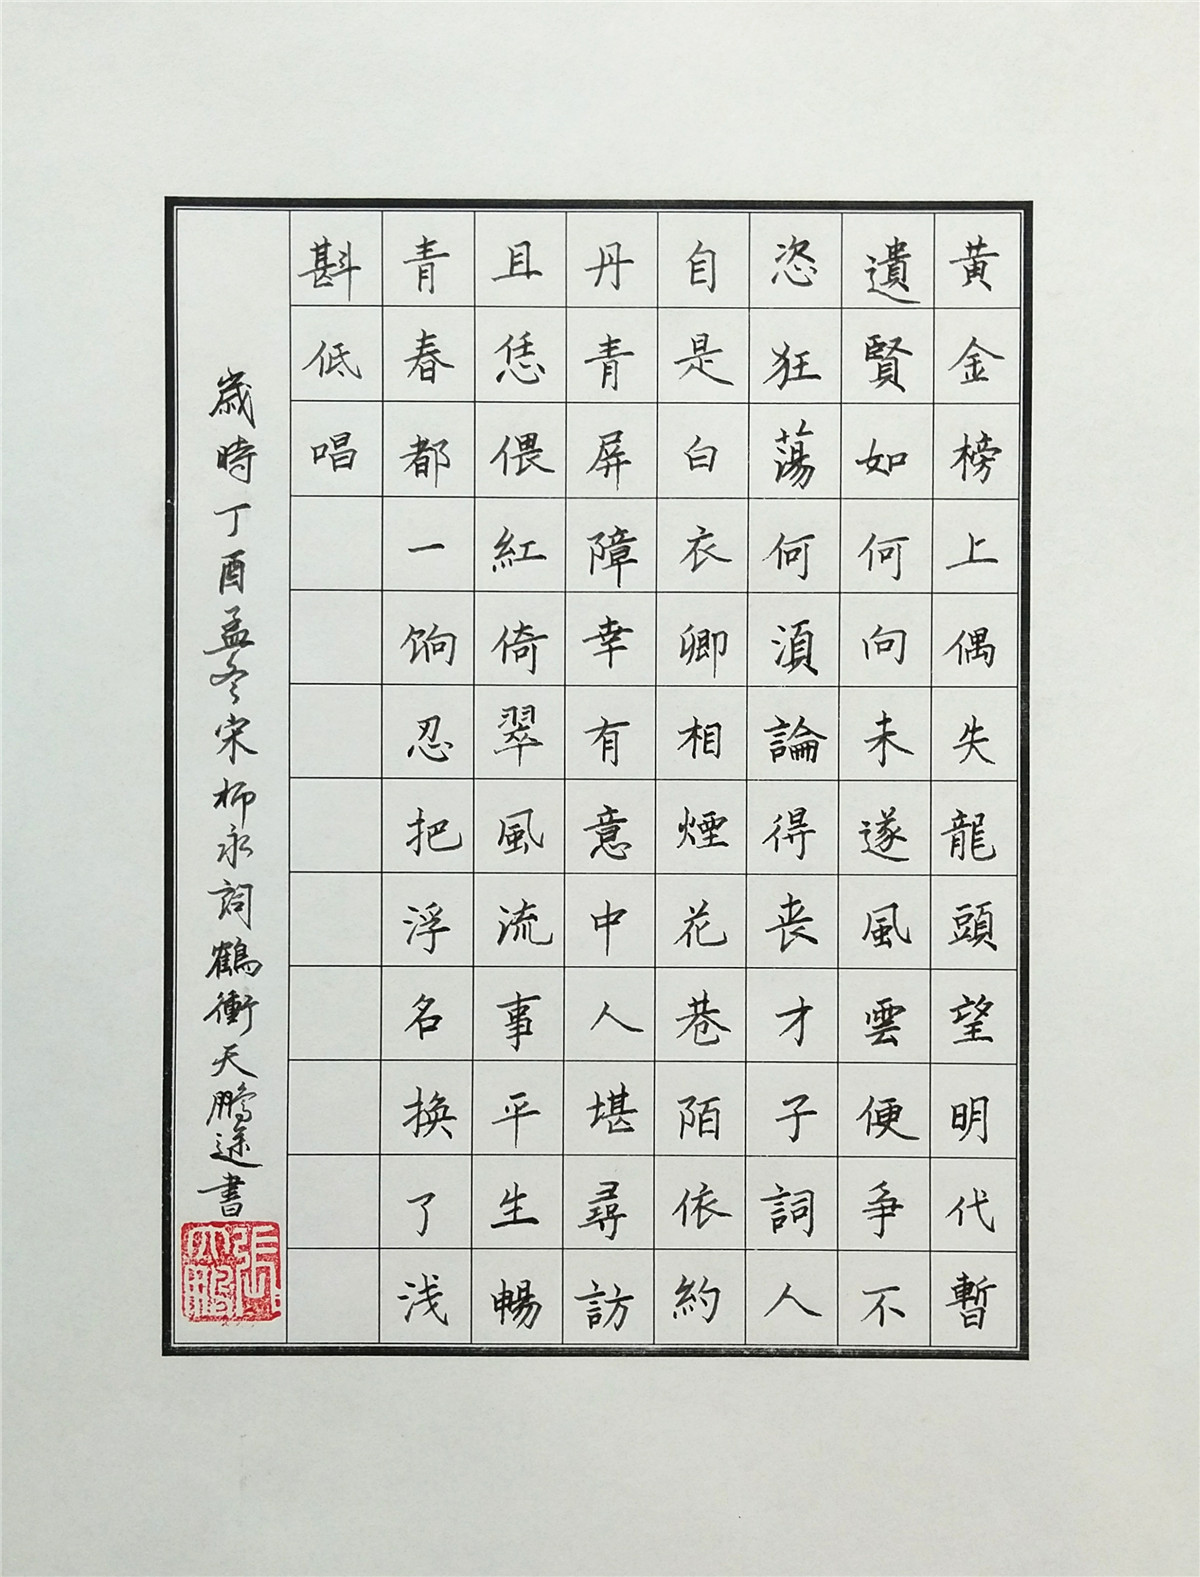 黃金榜上偶失龍頭望明代暫
遺賢如何向未遂風雲便爭不
恣狂蕩何須論得丧才子詞人
自是白衣卿相煙花巷陌依約
丹青屏障幸有意中人堪尋訪
且恁偎紅倚翠風流事平生暢
青春都一饷忍把浮名換了浅
斟低唱
歲時丁酉孟冬宋柳永詞鶴衝天鵬途書
張大鵬